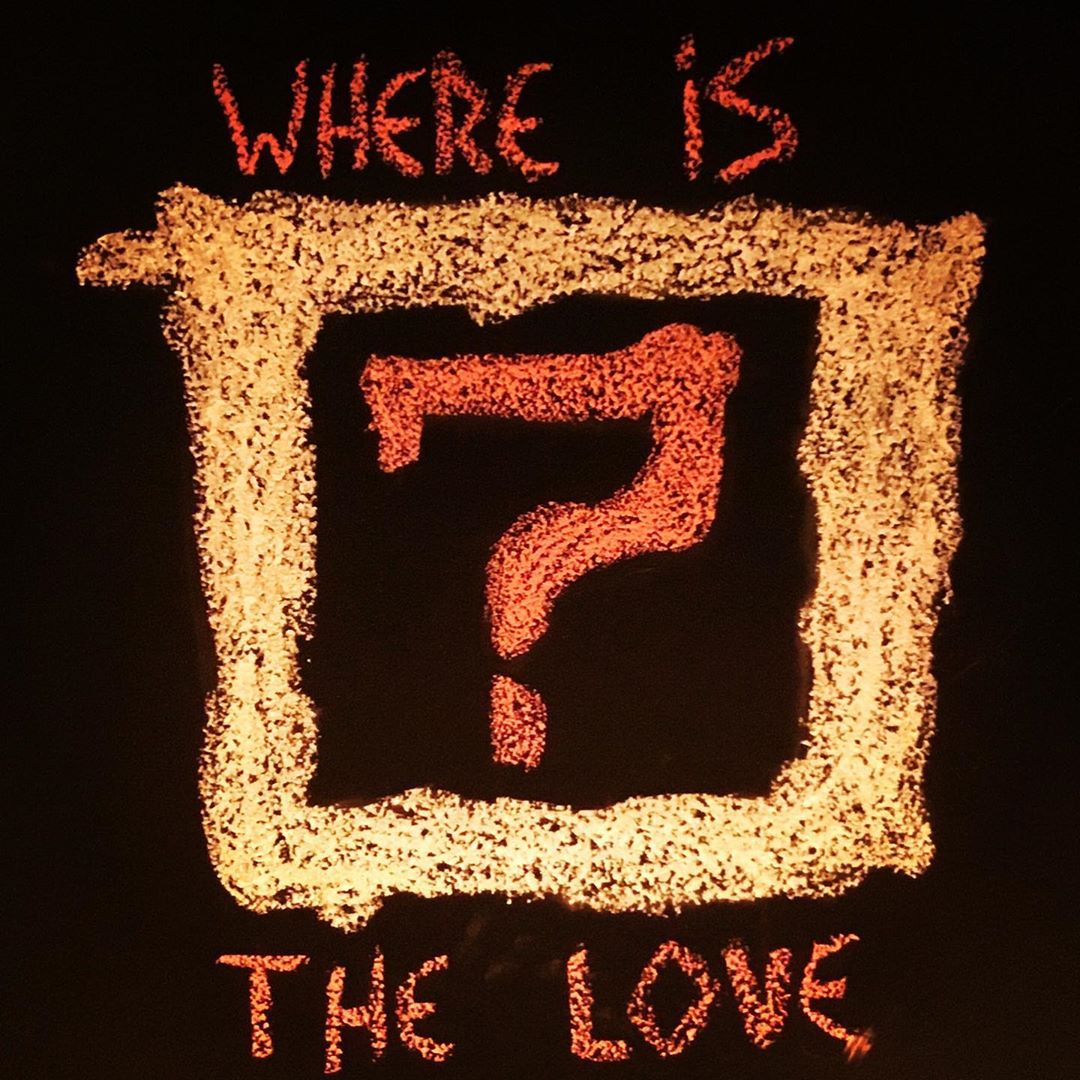 WHERE iS
?
THE LOVE